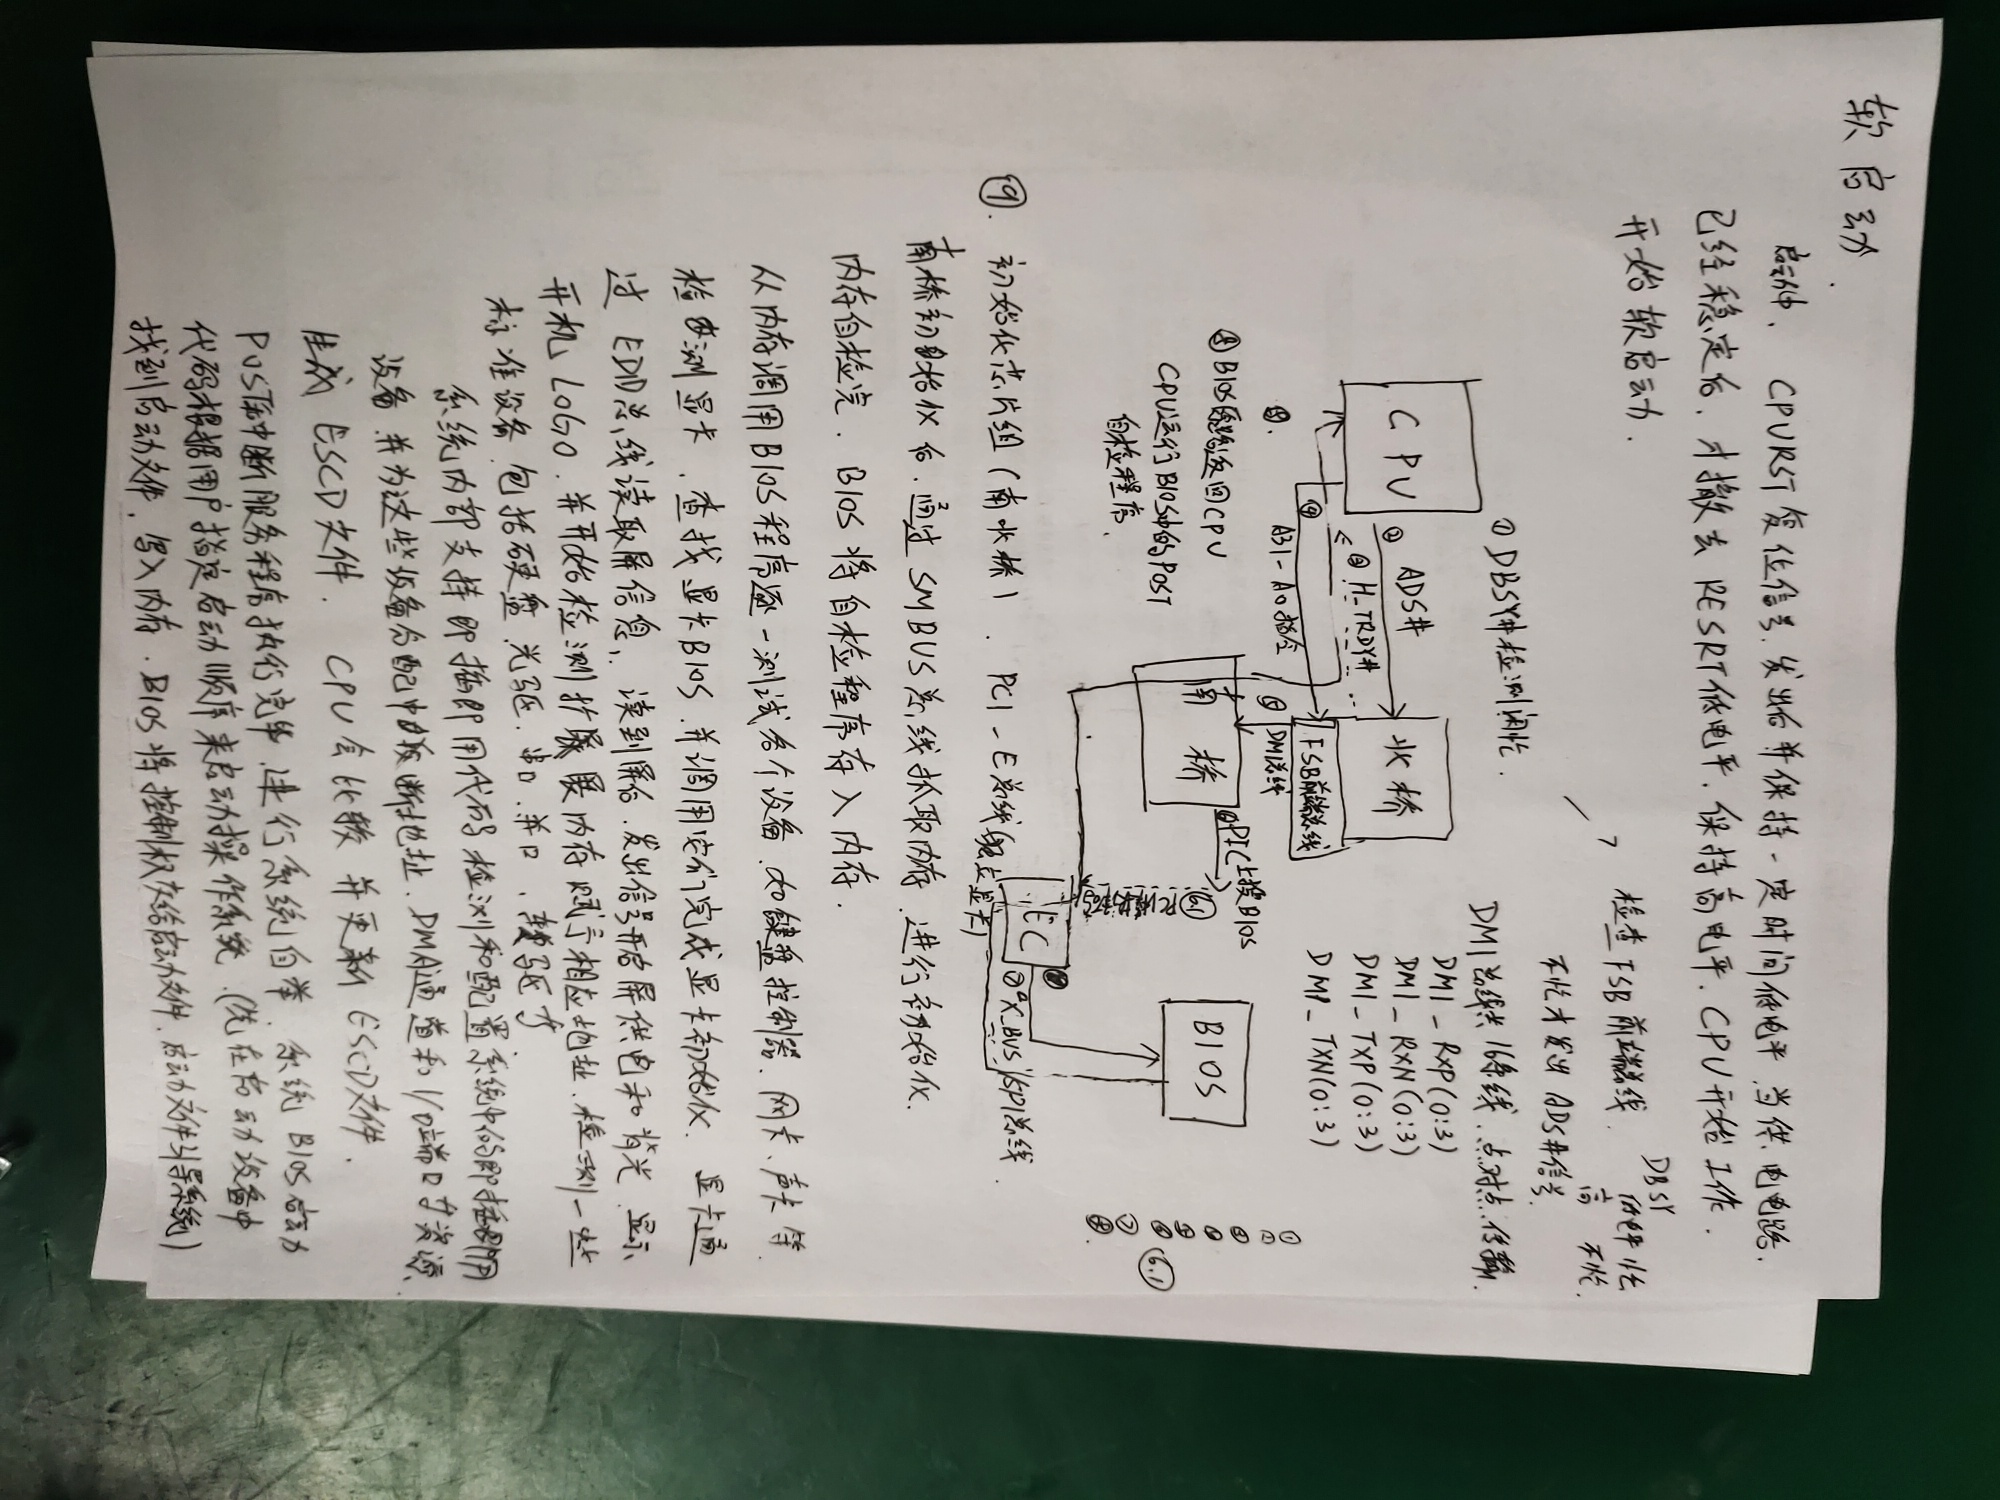 软启动
启动中. CPURST复位信号.发出后并保持一定时间低电平.当供电电路
已经稳定后.才撤去RESRT低电平.保持高电平.CPU开始工作.
开始软启动.
① DBSY#检测闲忙.
检查FSB前端总线.
不忙才发出ADS#信号
DBSY
低电平忙
高 不忙.
CPU
② ADS#
③ H_TRDY#
④
A31-A0指令
北桥
FSB前端总线
DMI总线
⑤
南桥
PIC上接BIOS
6.1
EC
⑦ X_BUS/SPI总线
BIOS
DMI总线共16条线.点对点.传输.
DMI-RXP(0:3)
DMI-RXN(0:3)
DMI-TXP(0:3)
DMI-TXN(0:3)
6.1
⑧BIOS原路返回CPU
CPU运行BIOS中的POST
自检程序.
⑨. 初始化芯片组(南北桥). PCI-E总线(独立显卡)
南桥初始化后.通过SMBUS总线抓取内存.进行初始化.
内存自检完.BIOS将自检程序存入内存.
从内存调用BIOS程序逐一测试各个设备.如键盘控制器.网卡、声卡等.
检测显卡.查找显卡BIOS.并调用它们完成显卡初始化. 显卡通
过EDID总线读取屏信息. 读到屏后.发出信号开启屏供电和背光.显示
开机LOGO.并开始检测扩展内存赋予相应地址.检测一些
标准设备.包括硬盘.光驱.串口.并口.软驱等
系统内部支持即插即用代码检测和配置系统中的即插即用
设备.并为这些设备分配中断地址.DMA通道和I/O端口等资源.
生成ESCD文件. CPU会比较并更新ESCD文件.
POST除中断服务程序执行完毕.进行系统自举.系统BIOS启动
代码根据用户指定启动顺序来启动操作系统.(优在启动设备中
找到启动文件.写入内存.BIOS将控制权交给启动文件.启动文件引导系统)